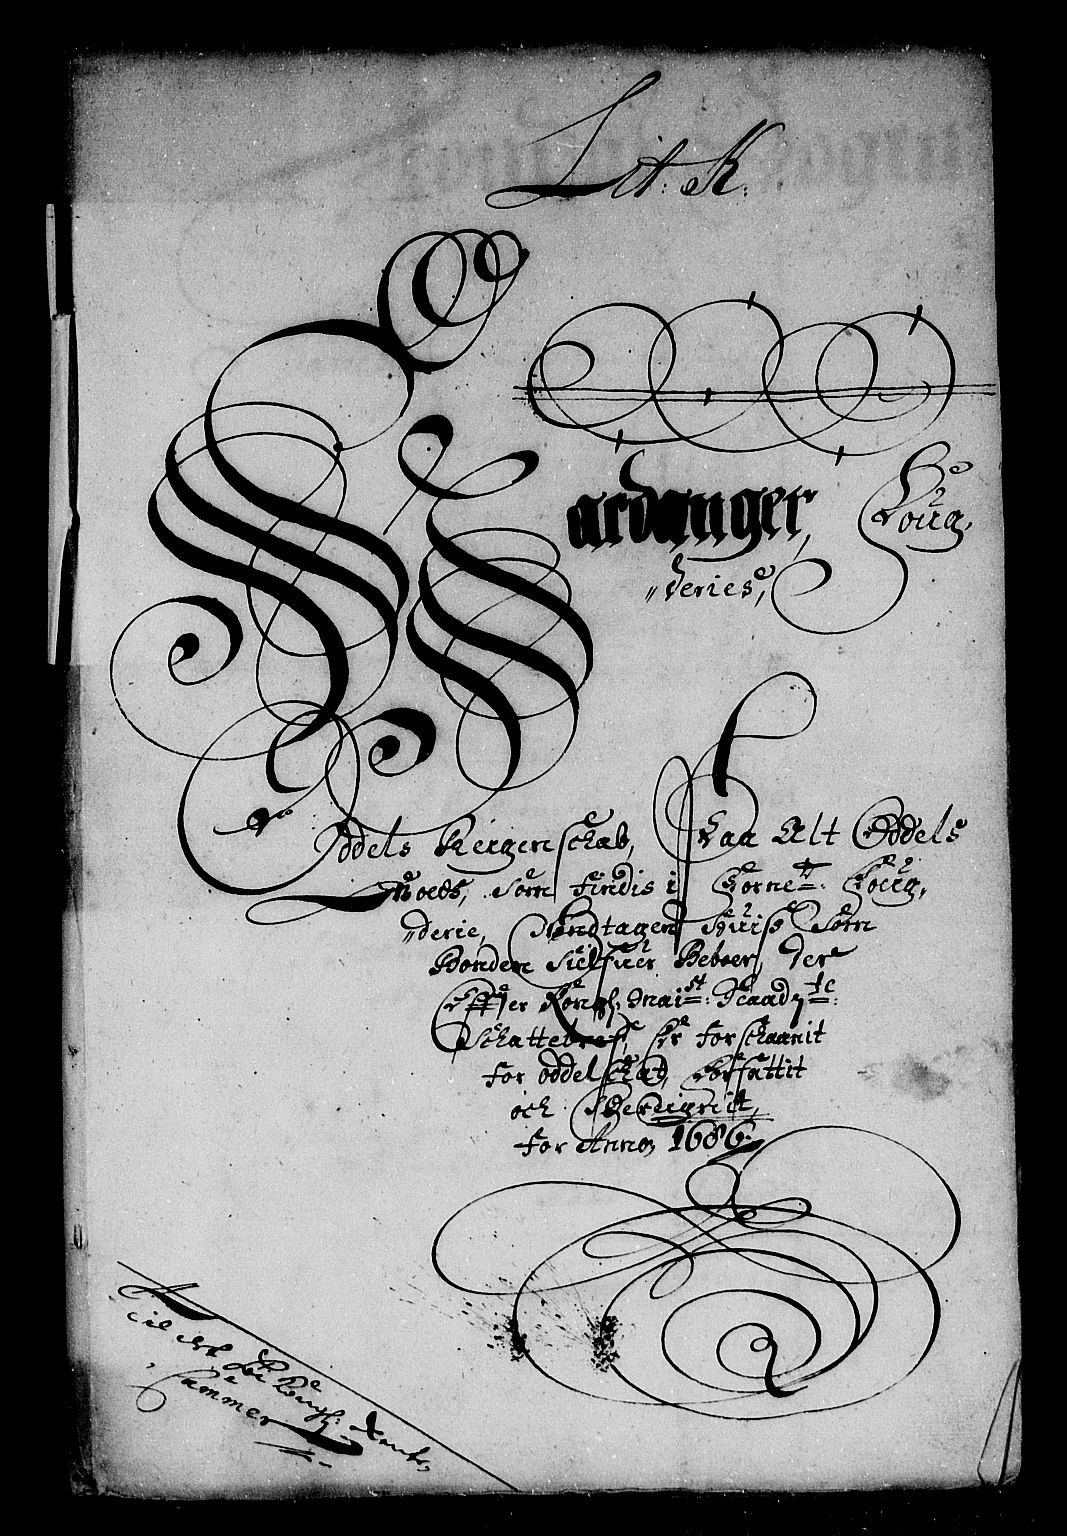 Lit: K:
Hardanger, Foug,
„deries,
Oddels Regenschab, Paa Alt Oddels
Goeds, som findis i forne: foug,
„derie, Undtagen huis som
Bonden Sielfuer Beboer, der
Effter Kongl: Mai:st: Naadig:te:
Schattebref, er forschaanit
for oddelschat, forfattit
och
for Anno, 1686.
Cammer